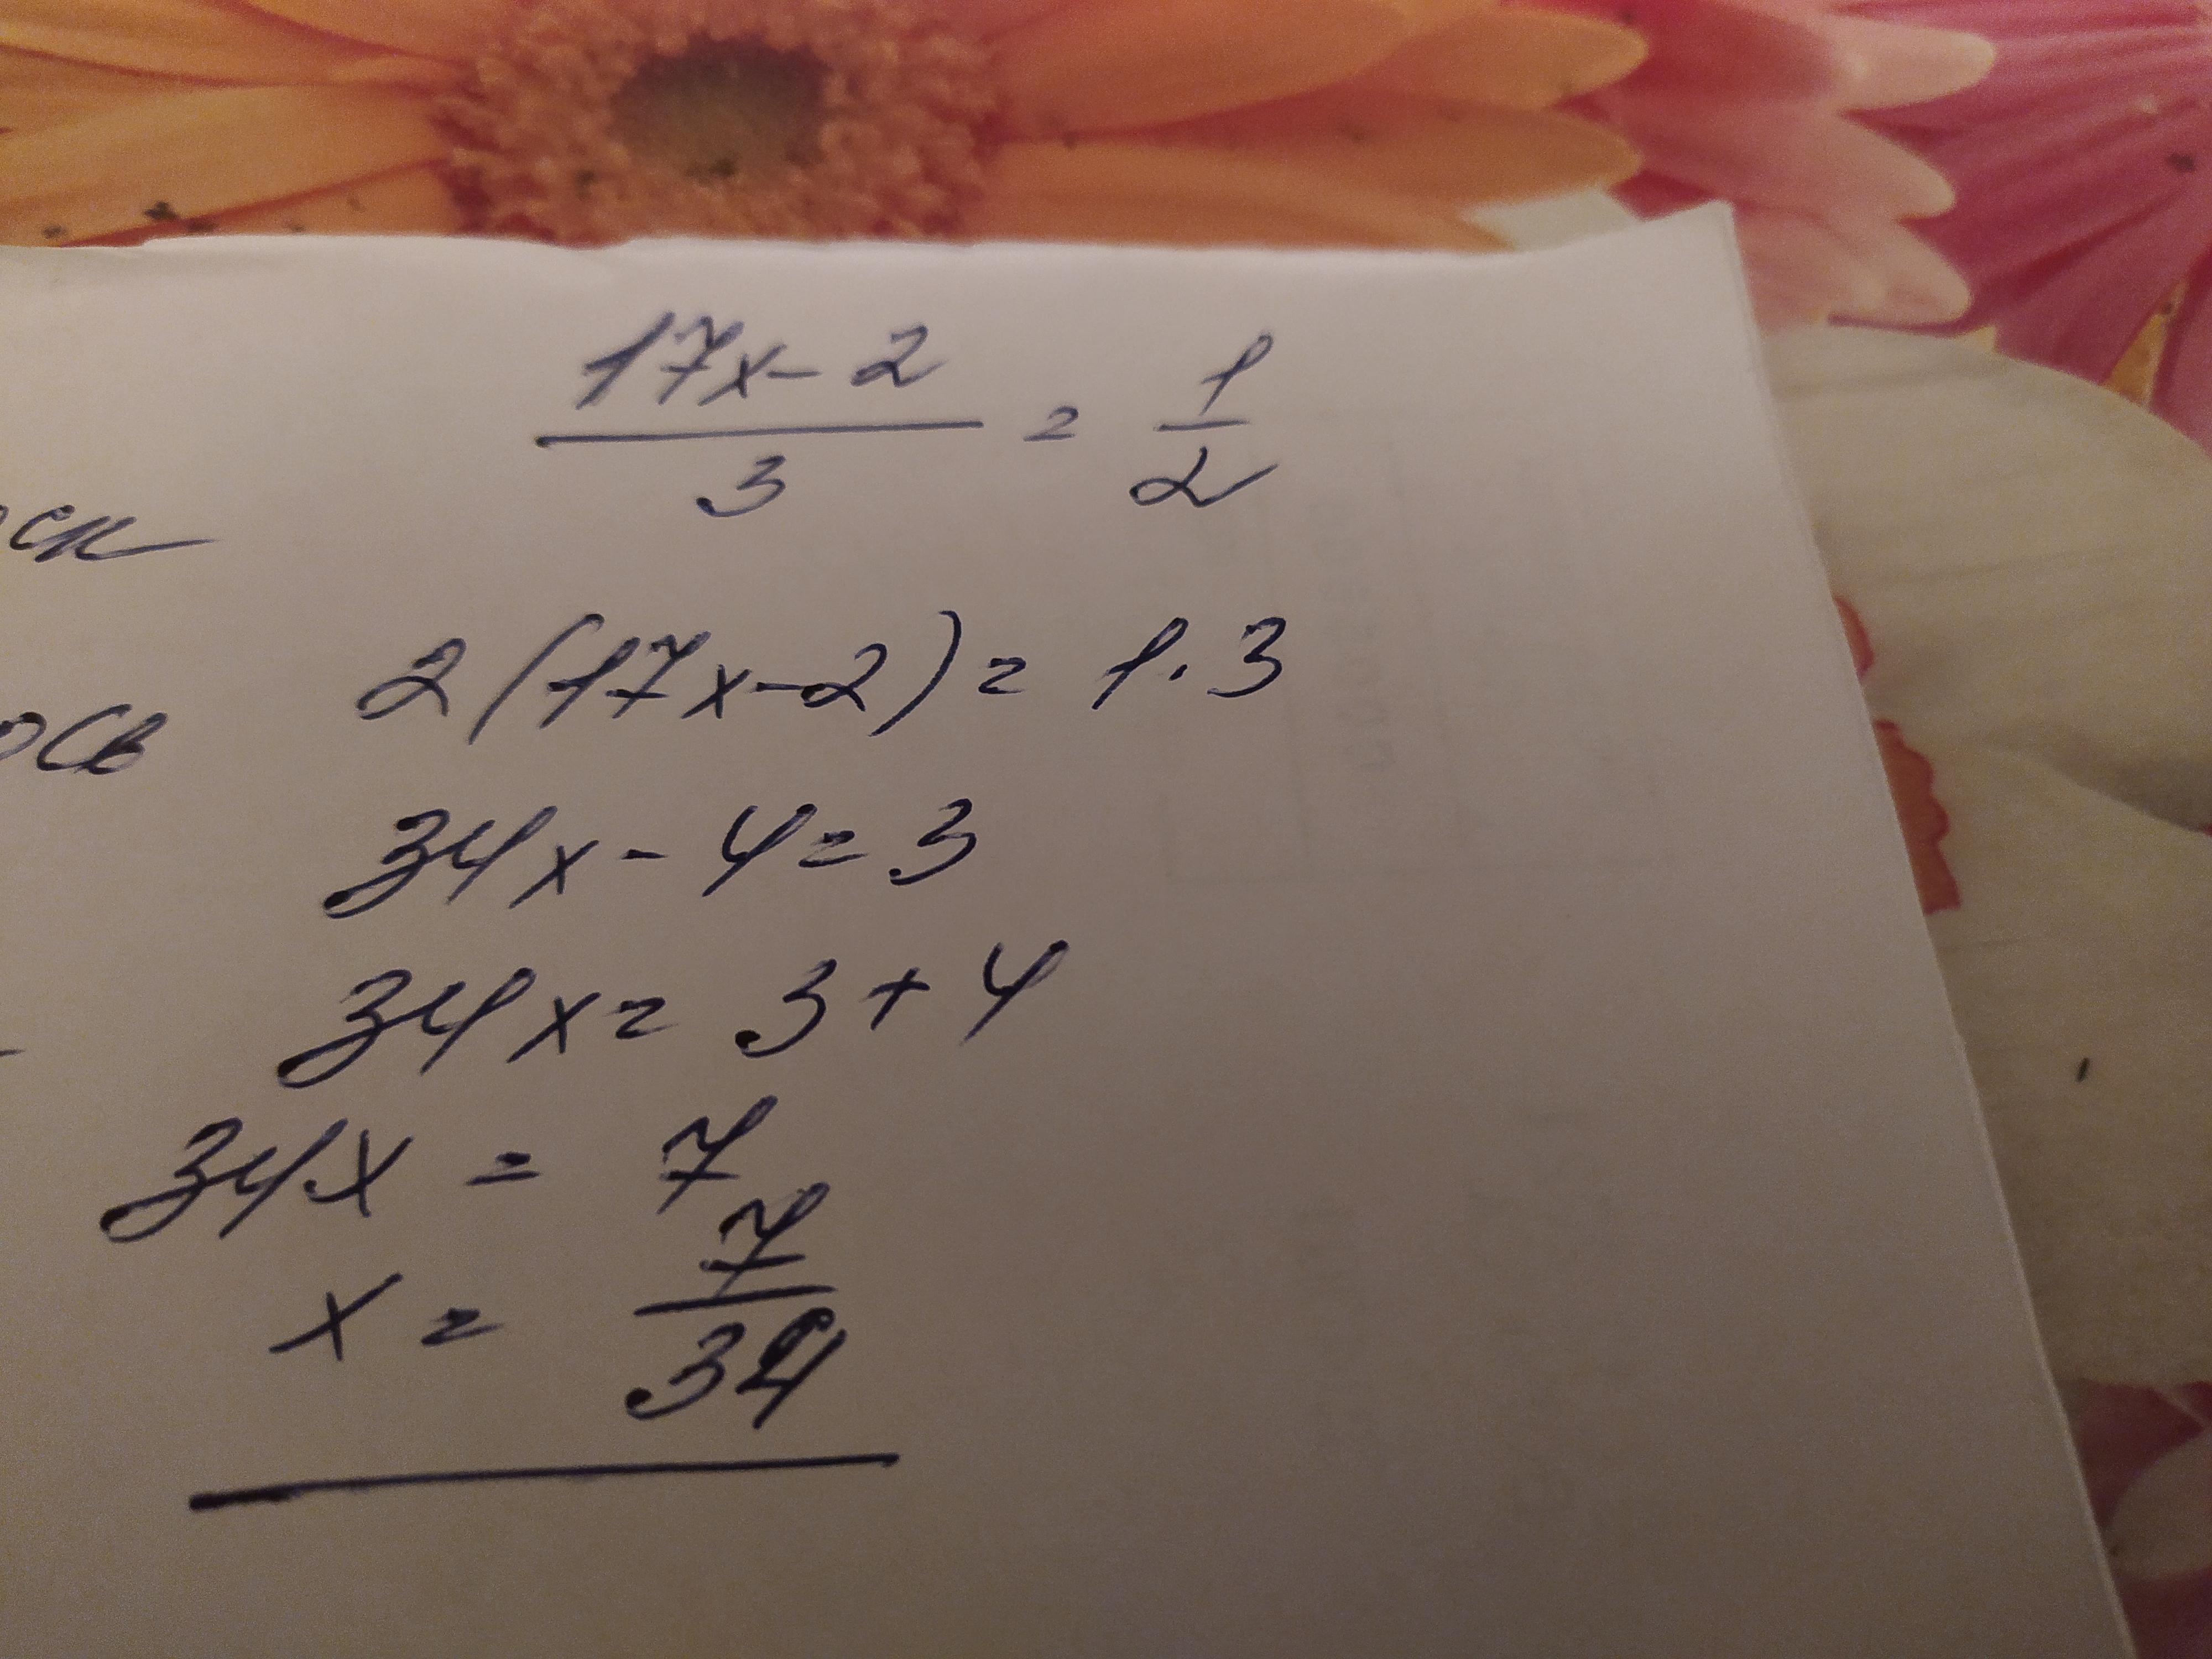 17x-2/3 = 1/2
2(17x-2) = 1·3
34x - 4 = 3
34x = 3 + 4
34x = 7
x = 7/34